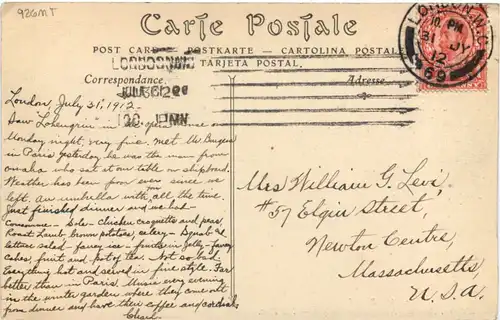 926MT
Carte Postale
POST CARD — POSTKARTE — CARTOLINA POSTALE
TARJETA POSTAL.
Correspondence.
Adresse
LONDON.W.
10. PM
31 JY
12
69
London, July 31, 1912.
Saw Lohengrin in the opera house on
Monday night, very fine. Met Mr.
in Paris yesterday he was the man from
Omaha who sat at our table on shipboard.
Weather has been poor ever since we
left. An umbrella with me all the time.
Just finished dinner and we had —
Consomme - Sole - chicken croquettes and peas,
Roast Lamb - brown potatoes, celery - Squab and
lettuce salad - fancy ice - fruits in jelly - fancy
cakes, fruit and pot of tea. Not so bad.
Everything hot and served in fine style. Far
better than in Paris. Music every evening
in the winter garden where they come out
from dinner and have their coffee and cordials
Mrs William G. Levi,
#57 Elgin Street,
Newton Centre,
Massachusetts,
U.S.A.